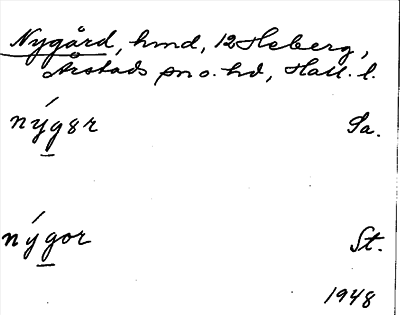 Nygård, hmd, 12 Heberg,
Årstads sn o. hd, Hall. l.
nýgər Sa.
nýgor St.
1948